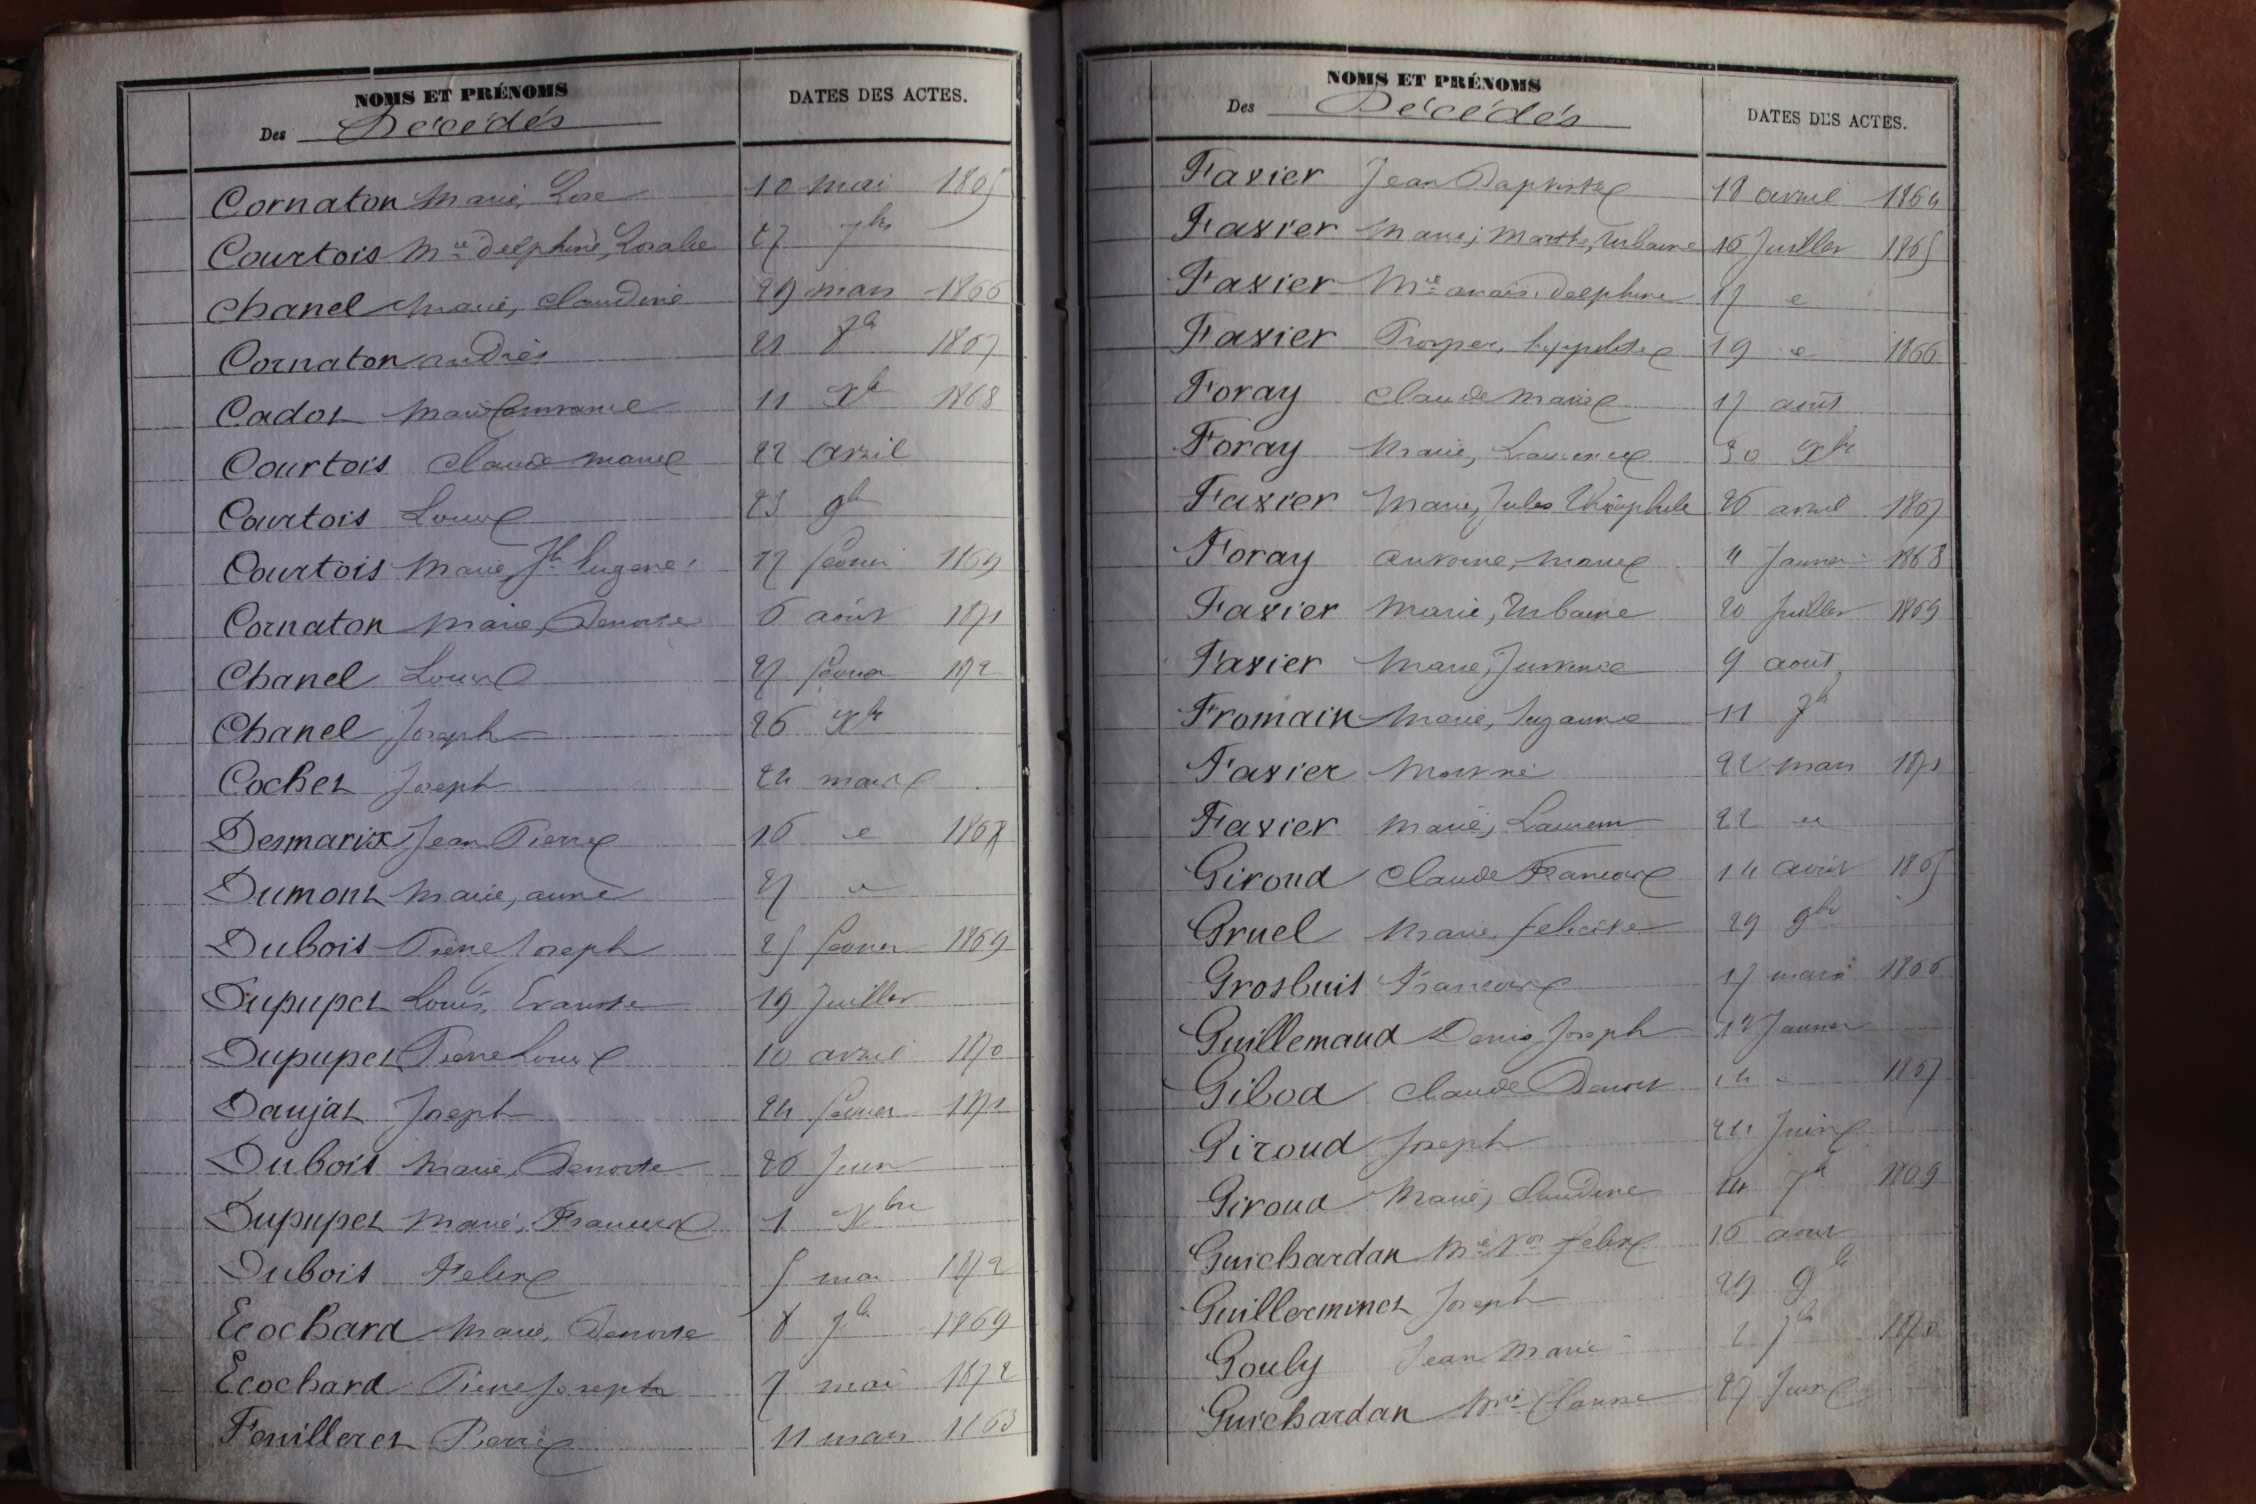 NOMS ET PRÉNOMS
Des Décédés
DATES DES ACTES.
Cornaton Marie, Rose 10 mai 1865
Courtois Mie Delphine, Rosalie 27 7bre
Chanel Marie, Claudine 29 mars 1866
Cornaton André 21 1867
Cadot Marie 11 Xbre 1868
Courtois Claude Marie 22 avril
Courtois Louise 23 9bre
Courtois Marie Jh Eugene 17 février 1869
Cornaton Marie, Benoite 6 août 1871
Chanel Louise 27 février 1872
Chanel Joseph 26 Xbre
Cochet Joseph 24 mars
Desmarix Jean Pierre 16 e 1868
Dumont Marie, anne 27 e
Dubois Pierre Joseph 25 février 1869
Dupupet Louis, Evariste 19 Juillet
Dupupet Pierre Louis 10 avril 1870
Daujat Joseph 24 février 1871
Dubois Marie, Benoite 26 Juin
Dupupet Marie, Francoise 1 Xbre
Dubois Felix 5 mai 1872
Ecochard Marie, Benoite 8 7bre 1869
Ecochard Pierre Joseph 7 mai 1872
Feuilleret Pierre 11 mars 1863
NOMS ET PRÉNOMS
Des Décédés
DATES DES ACTES.
Favier Jean Baptiste 18 avril 1864
Favier Marie, Marthe, Urbaine 16 Juillet 1865
Favier Mie anaïs, Delphine 17 e
Favier Prosper, hyppolite 19 e 1866
Foray Claude Marie 17 août
Foray Marie, Laurence 30 Xbre
Favier Marie, Jules Théophile 26 avril 1867
Foray antoine, Marie 4 Janvier 1868
Favier Marie, Urbaine 20 Juillet 1869
Favier Marie, 9 août
Fromain Marie, Suzanne 11 7bre
Favier 22 mars 1871
Favier Marie, Laurent 22 e
Giroud Claude Francois 14 août 1865
Gruel Marie felicite 29 9bre
Grosbuis Francoise 17 mars 1866
Guillemaud Denis Joseph 12 Janvier
Gibod Claude Benoit 14 e 1867
Giroud Joseph 24 Juin
Giroud Marie, Claudine 14 7bre 1869
Guichardan Mie felix 16 aout
Guillerminet Joseph 29 9bre
Gouly Jean Marie 2 7bre 1870
Guichardan Mie 27 Juin